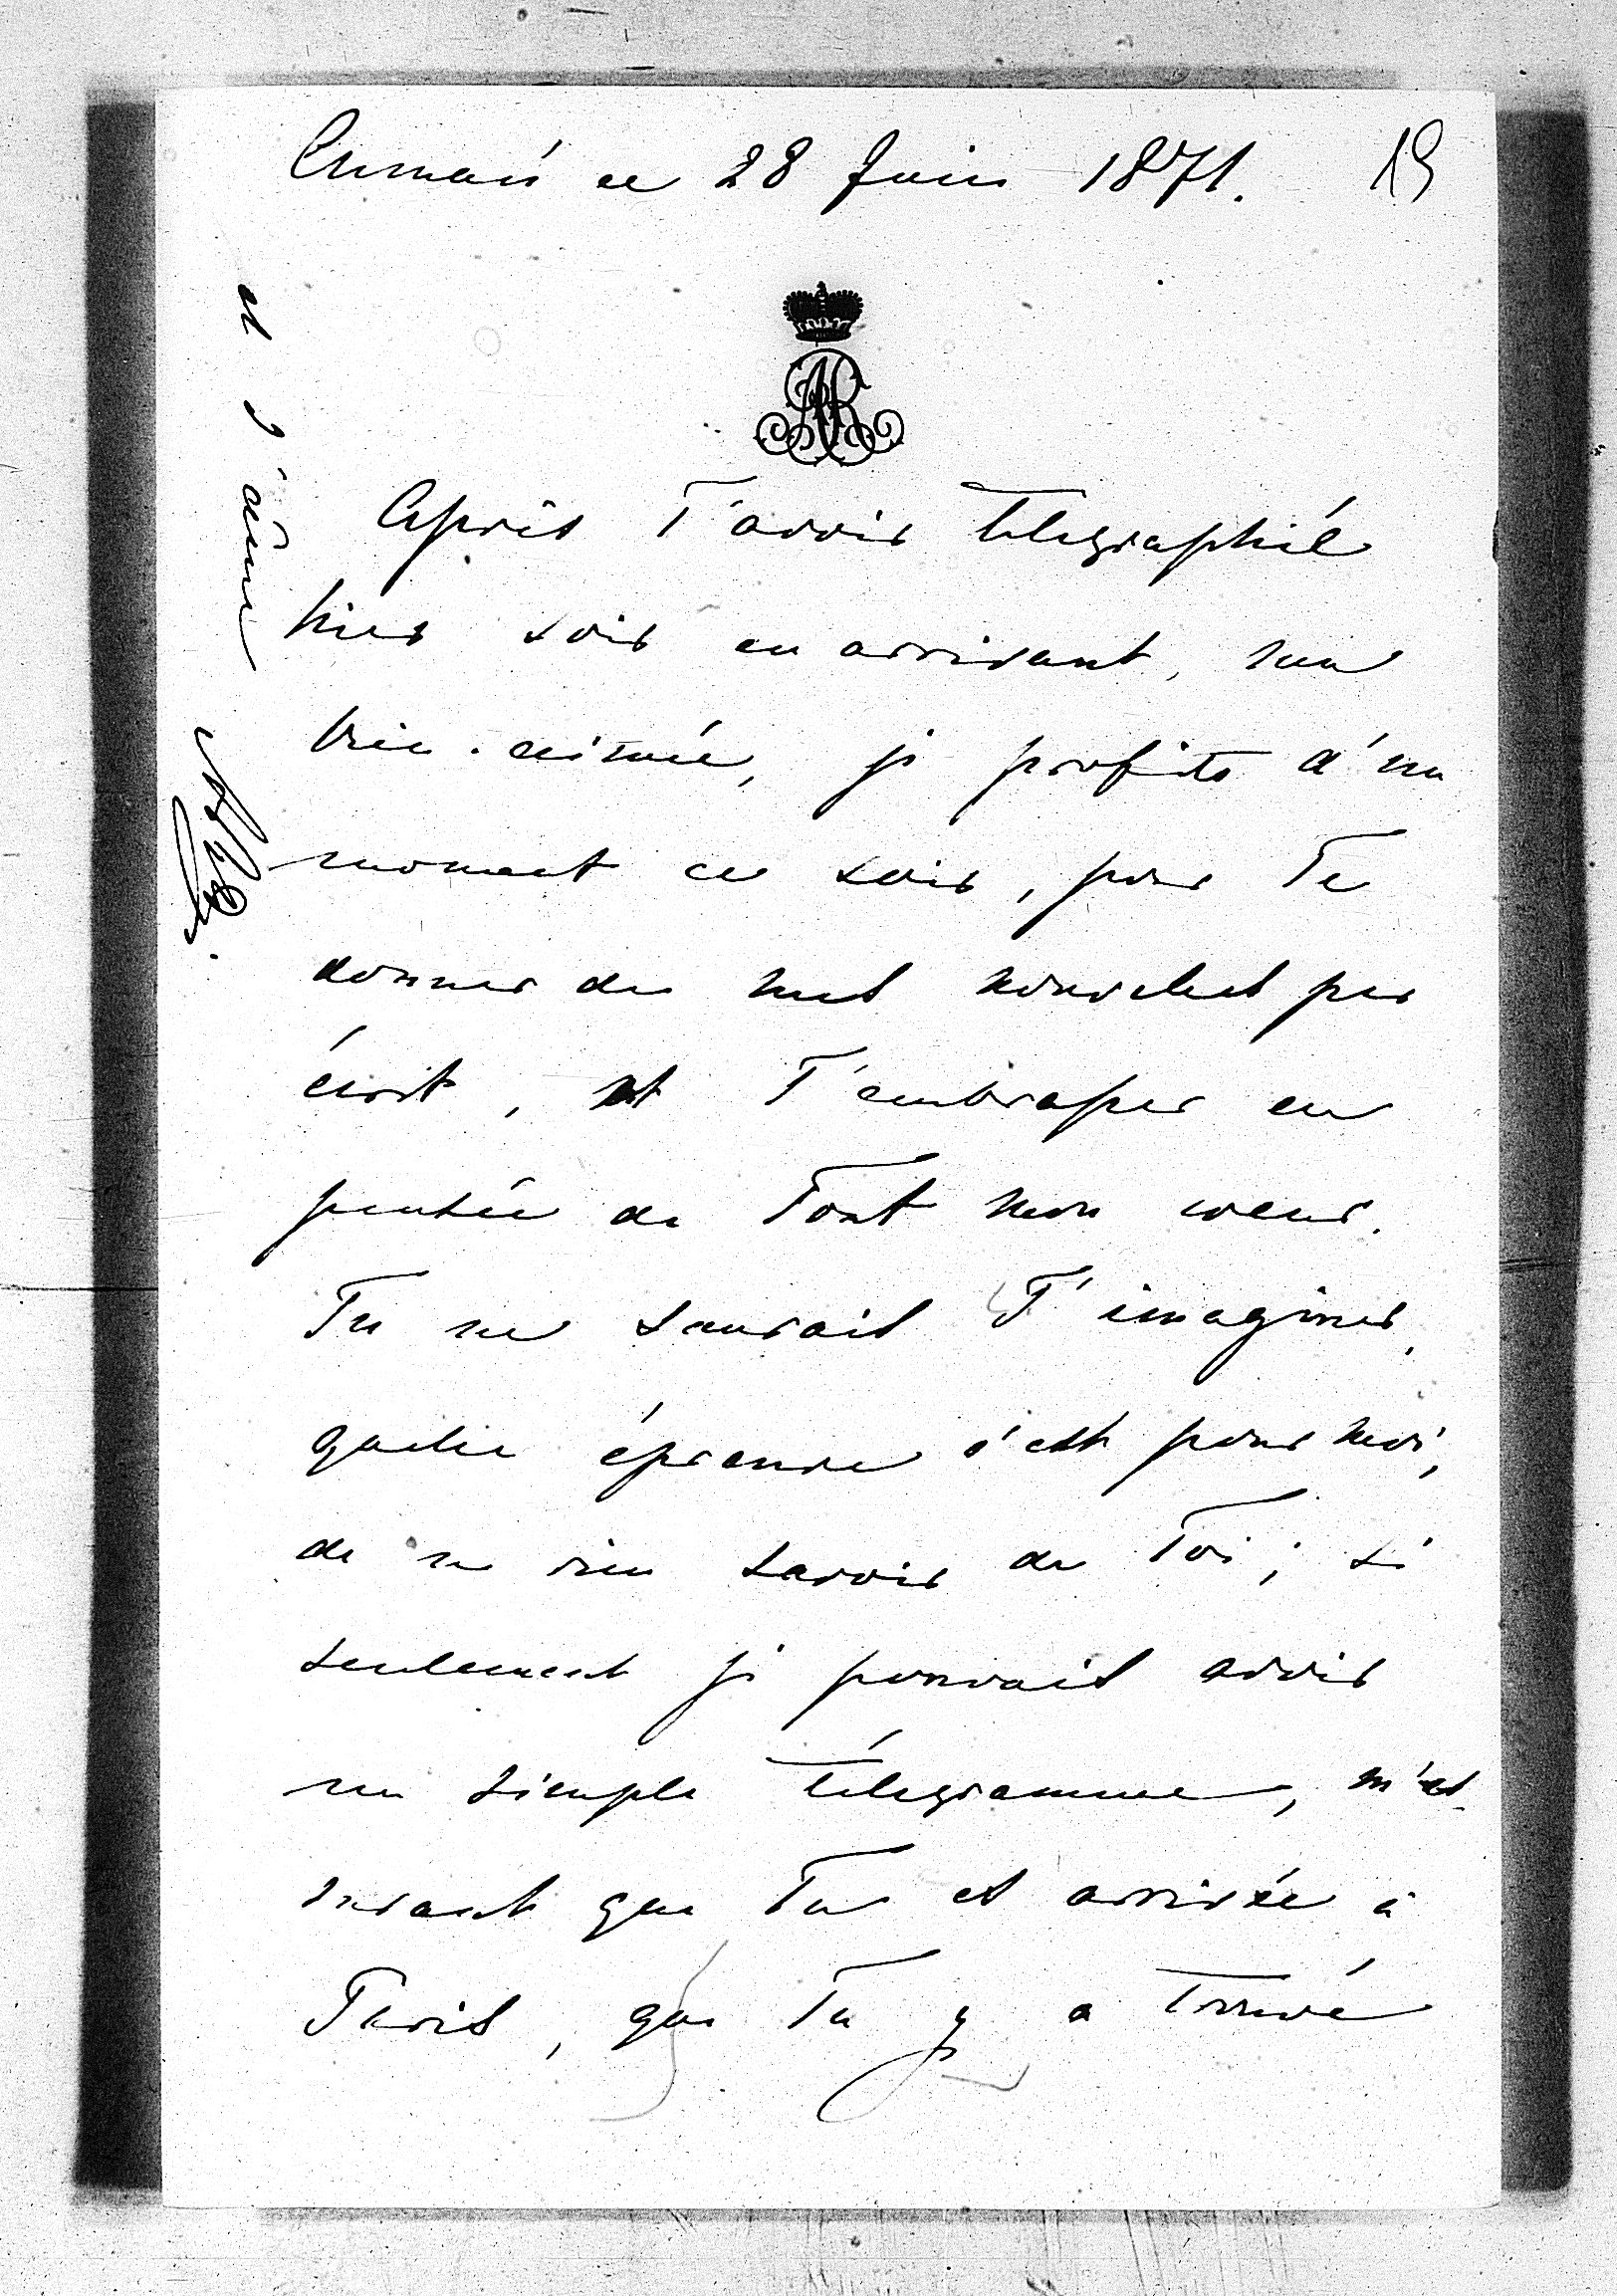 ce 28 Juin 1871. 19
Après T'avoir telegraphié
hier soir en arrivant, ma
bien-aimée, je profite d'un
moment ce soir, pour Te
donner de mes nouvelles par
écrit, et T'embrasser en
pensée de Tout mon coeur.
Tu ne saurais T'imaginer,
quelle épreuve c'est pour moi,
de ne rien savoir de Toi; si
seulement je pouvais avoir
un simple télégramme, m'as-
surant que Tu es arrivée à
Paris, que Tu y a trouvé
et T'aime